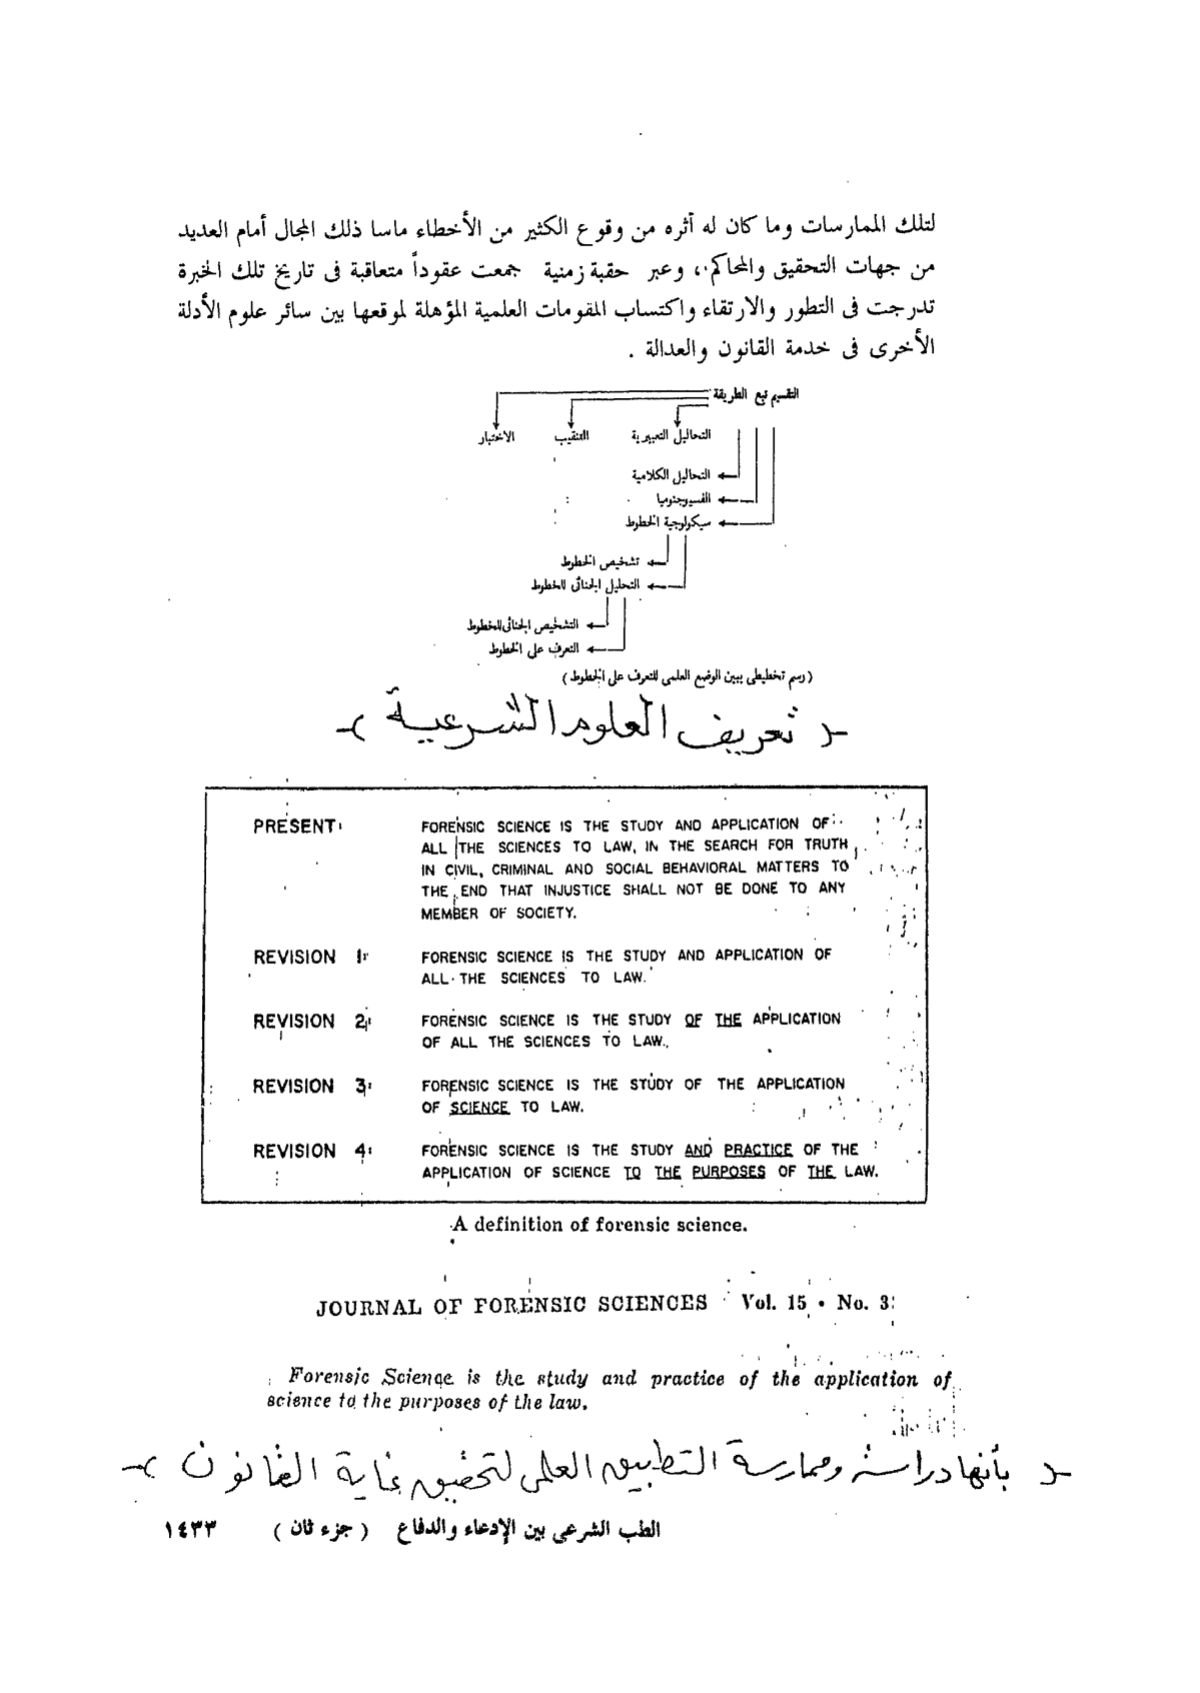 لتلك الممارسات وما كان له أثره من وقوع الكثير من الأخطاء ماسا ذلك المجال أمام العديد
من جهات التحقيق والمحاكم، وعبر حقبة زمنية جمعت عقوداً متعاقبة فى تاريخ تلك الخبرة
تدرجت فى التطور والارتقاء واكتساب المقومات العلمية المؤهلة لموقعها بين سائر علوم الأدلة
الأخرى فى خدمة القانون والعدالة .
التقسيم تبع الطريقة
التحاليل التعبيرية التنقيب الاختبار
التحاليل الكلامية
الفسيوجنوميا
سيكولوجية الخطوط
تشخيص الخطوط
التحليل الجنائى للخطوط
التشخيص الجنائى للخطوط
التعرف على الخطوط
( رسم تخطيطى يبين الوضع العلمى للتعرف على الخطوط )
-( تعريف العلوم الشرعية )-
PRESENT: FORENSIC SCIENCE IS THE STUDY AND APPLICATION OF
ALL THE SCIENCES TO LAW, IN THE SEARCH FOR TRUTH
IN CIVIL, CRIMINAL AND SOCIAL BEHAVIORAL MATTERS TO
THE END THAT INJUSTICE SHALL NOT BE DONE TO ANY
MEMBER OF SOCIETY.
REVISION 1: FORENSIC SCIENCE IS THE STUDY AND APPLICATION OF
ALL THE SCIENCES TO LAW.
REVISION 2: FORENSIC SCIENCE IS THE STUDY OF THE APPLICATION
OF ALL THE SCIENCES TO LAW.
REVISION 3: FORENSIC SCIENCE IS THE STUDY OF THE APPLICATION
OF SCIENCE TO LAW.
REVISION 4: FORENSIC SCIENCE IS THE STUDY AND PRACTICE OF THE
APPLICATION OF SCIENCE TO THE PURPOSES OF THE LAW.
A definition of forensic science.
JOURNAL OF FORENSIC SCIENCES Vol. 15 • No. 3
Forensic Science is the study and practice of the application of
science to the purposes of the law.
-( بأنها دراسة وممارسة التطبيق العلمى لتحقيق غاية القانون )-
الطب الشرعى بين الإدعاء والدفاع ( جزء ثان ) ١٤٣٣